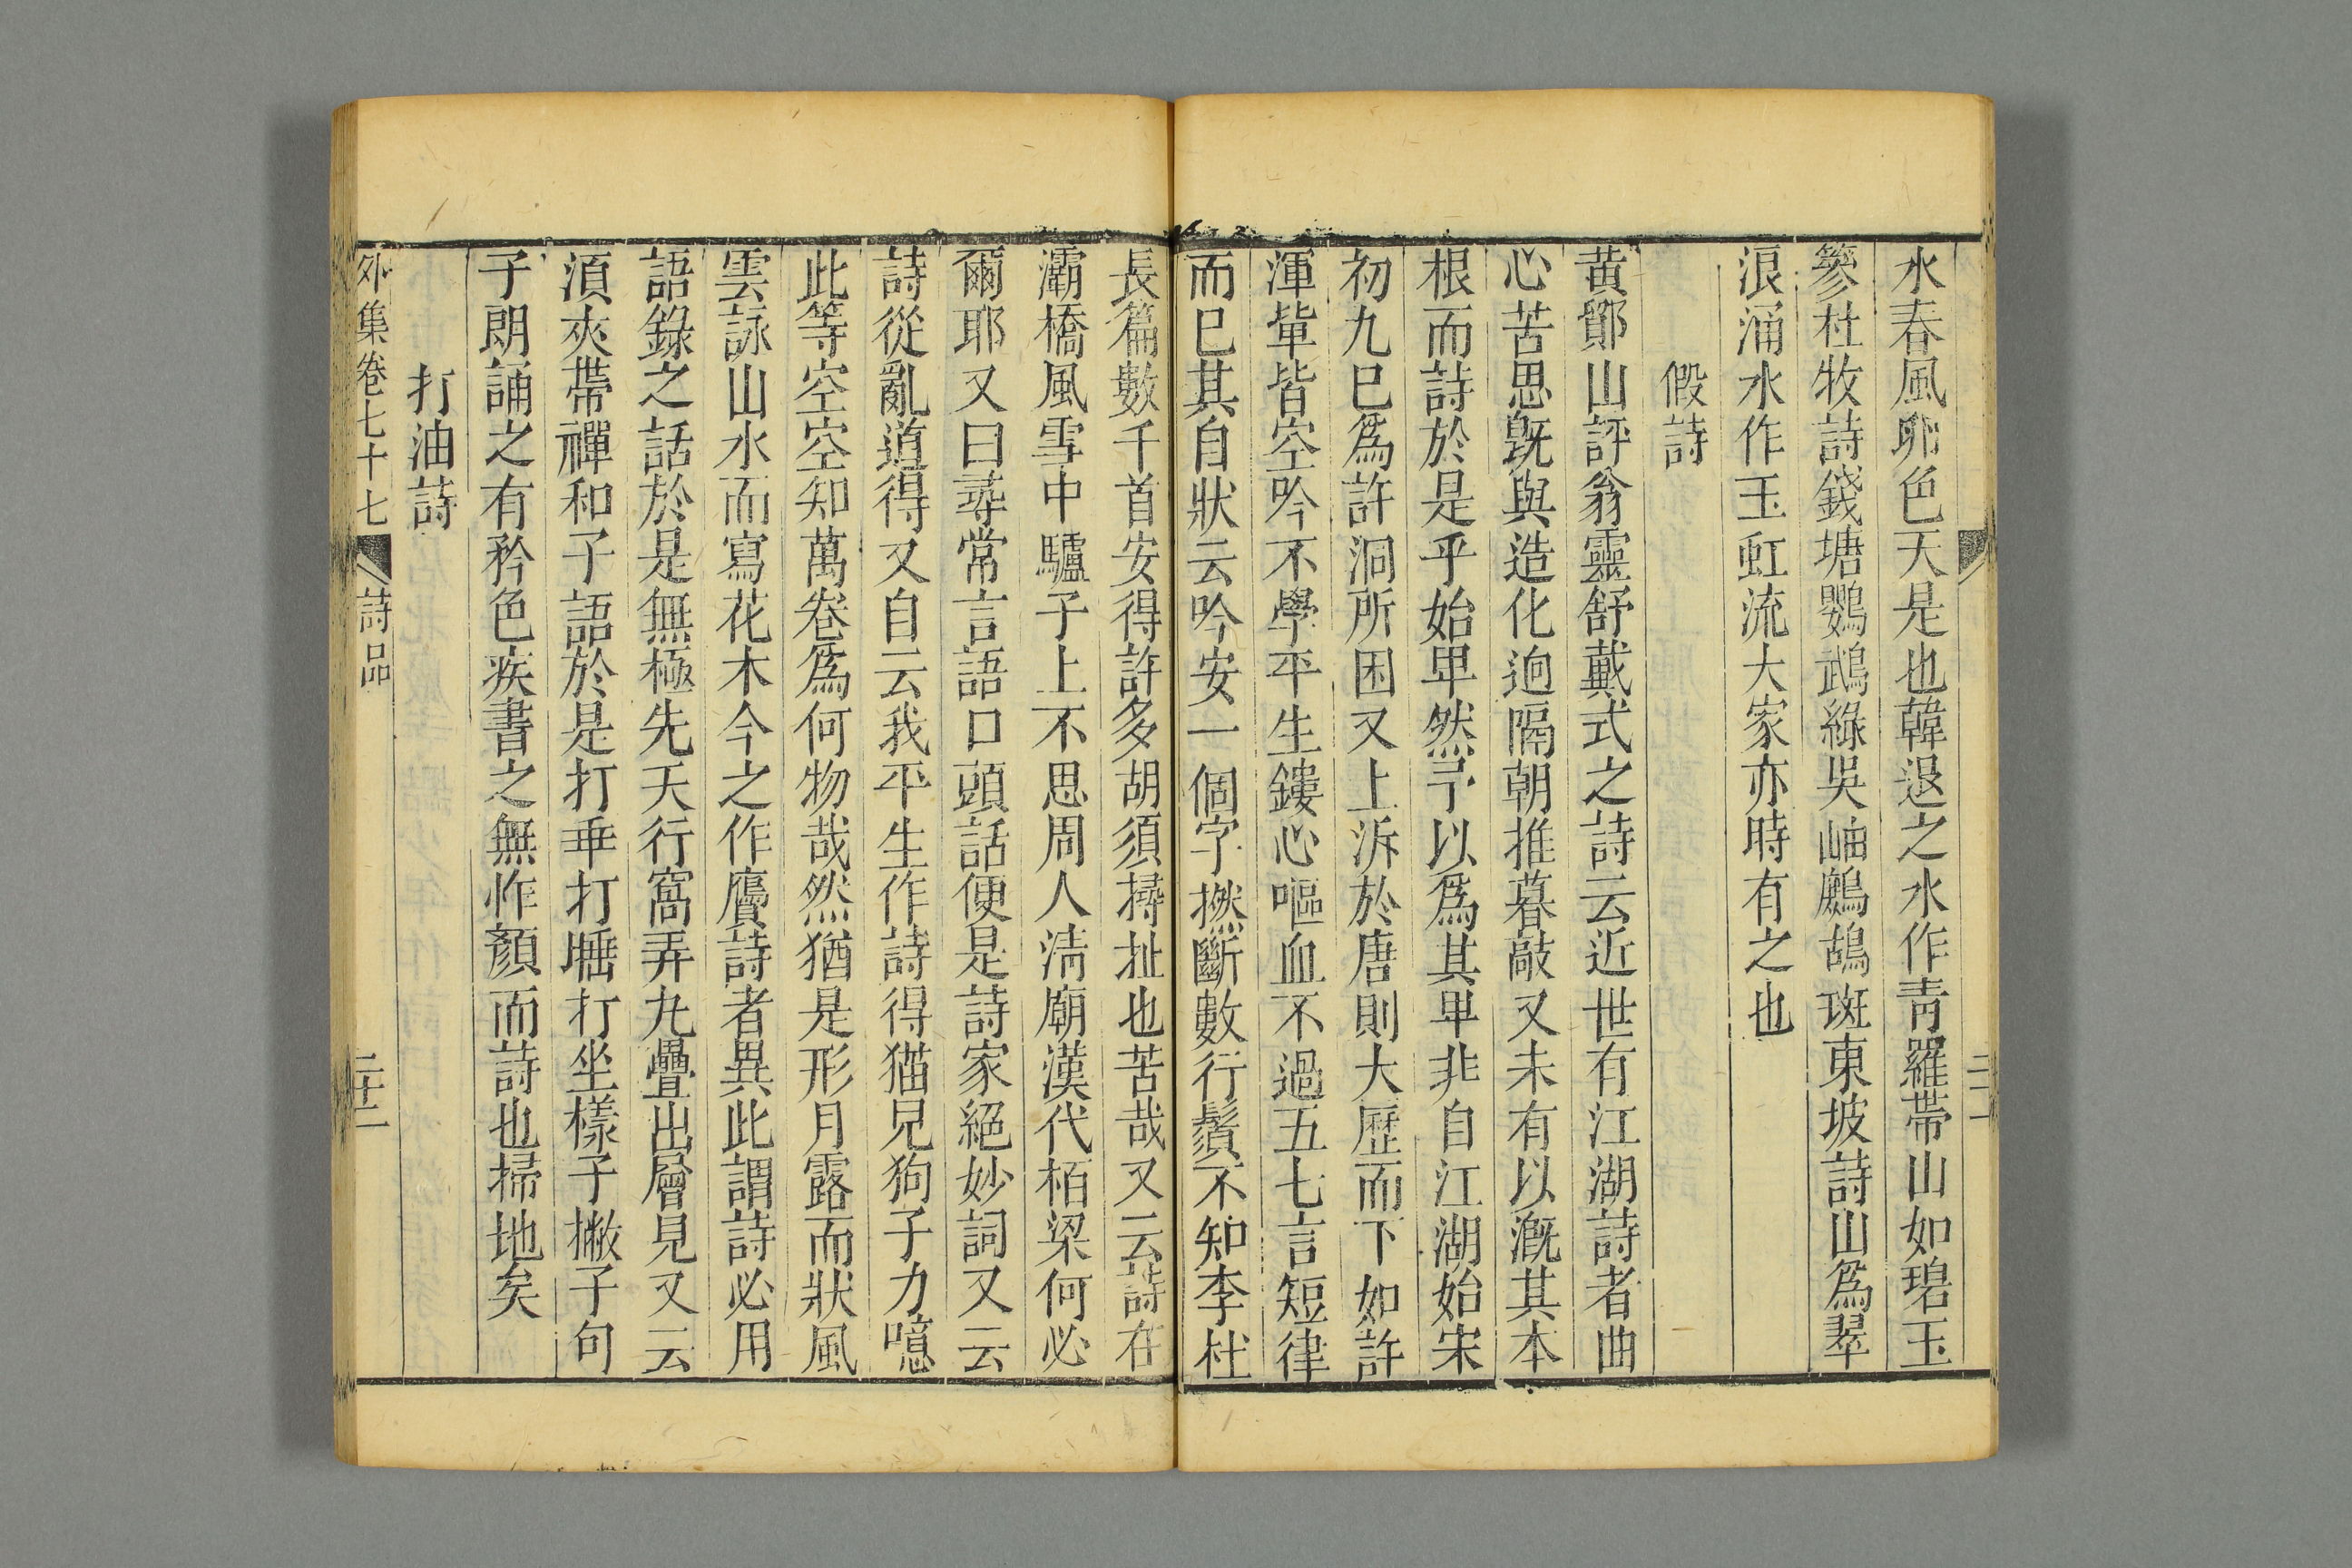 水春風卵色天是也韓退之水作青羅帶山如碧玉
篸杜牧詩錢塘鸚鵡綠吳岫鷓鴣斑東坡詩山爲翠
浪涌水作玉虹流大家亦時有之也
假詩
黃鄮山評翁靈舒戴式之詩云近世有江湖詩者曲
心苦思旣與造化逈隔朝推暮敲又未有以溉其本
根而詩於是乎始卑然予以爲其卑非自江湖始宋
初九巳爲許洞所困又上泝於唐則大歷而下如許
渾軰皆空吟不學平生鏤心嘔血不過五七言短律
而已其自狀云吟安一個字撚斷數行鬚不知李杜
長篇數千首安得許多胡須撏扯也苦哉又云詩在
灞橋風雪中驢子上不思周人淸廟漢代栢梁何必
爾耶又曰尋常言語口頭話便是詩家絕妙詞又云
詩從亂道得又自云我平生作詩得猫兒狗子力噫
此等空空知萬卷爲何物哉然猶是形月露而狀風
雲詠山水而寫花木今之作贗詩者異此謂詩必用
語錄之話於是無極先天行窩弄丸疊出層見又云
須夾帶禪和子語於是打乖打睡打坐樣子撇子句
子朗誦之有矜色疾書之無怍顏而詩也掃地矣
打油詩
外集卷七十七 詩品 二十二